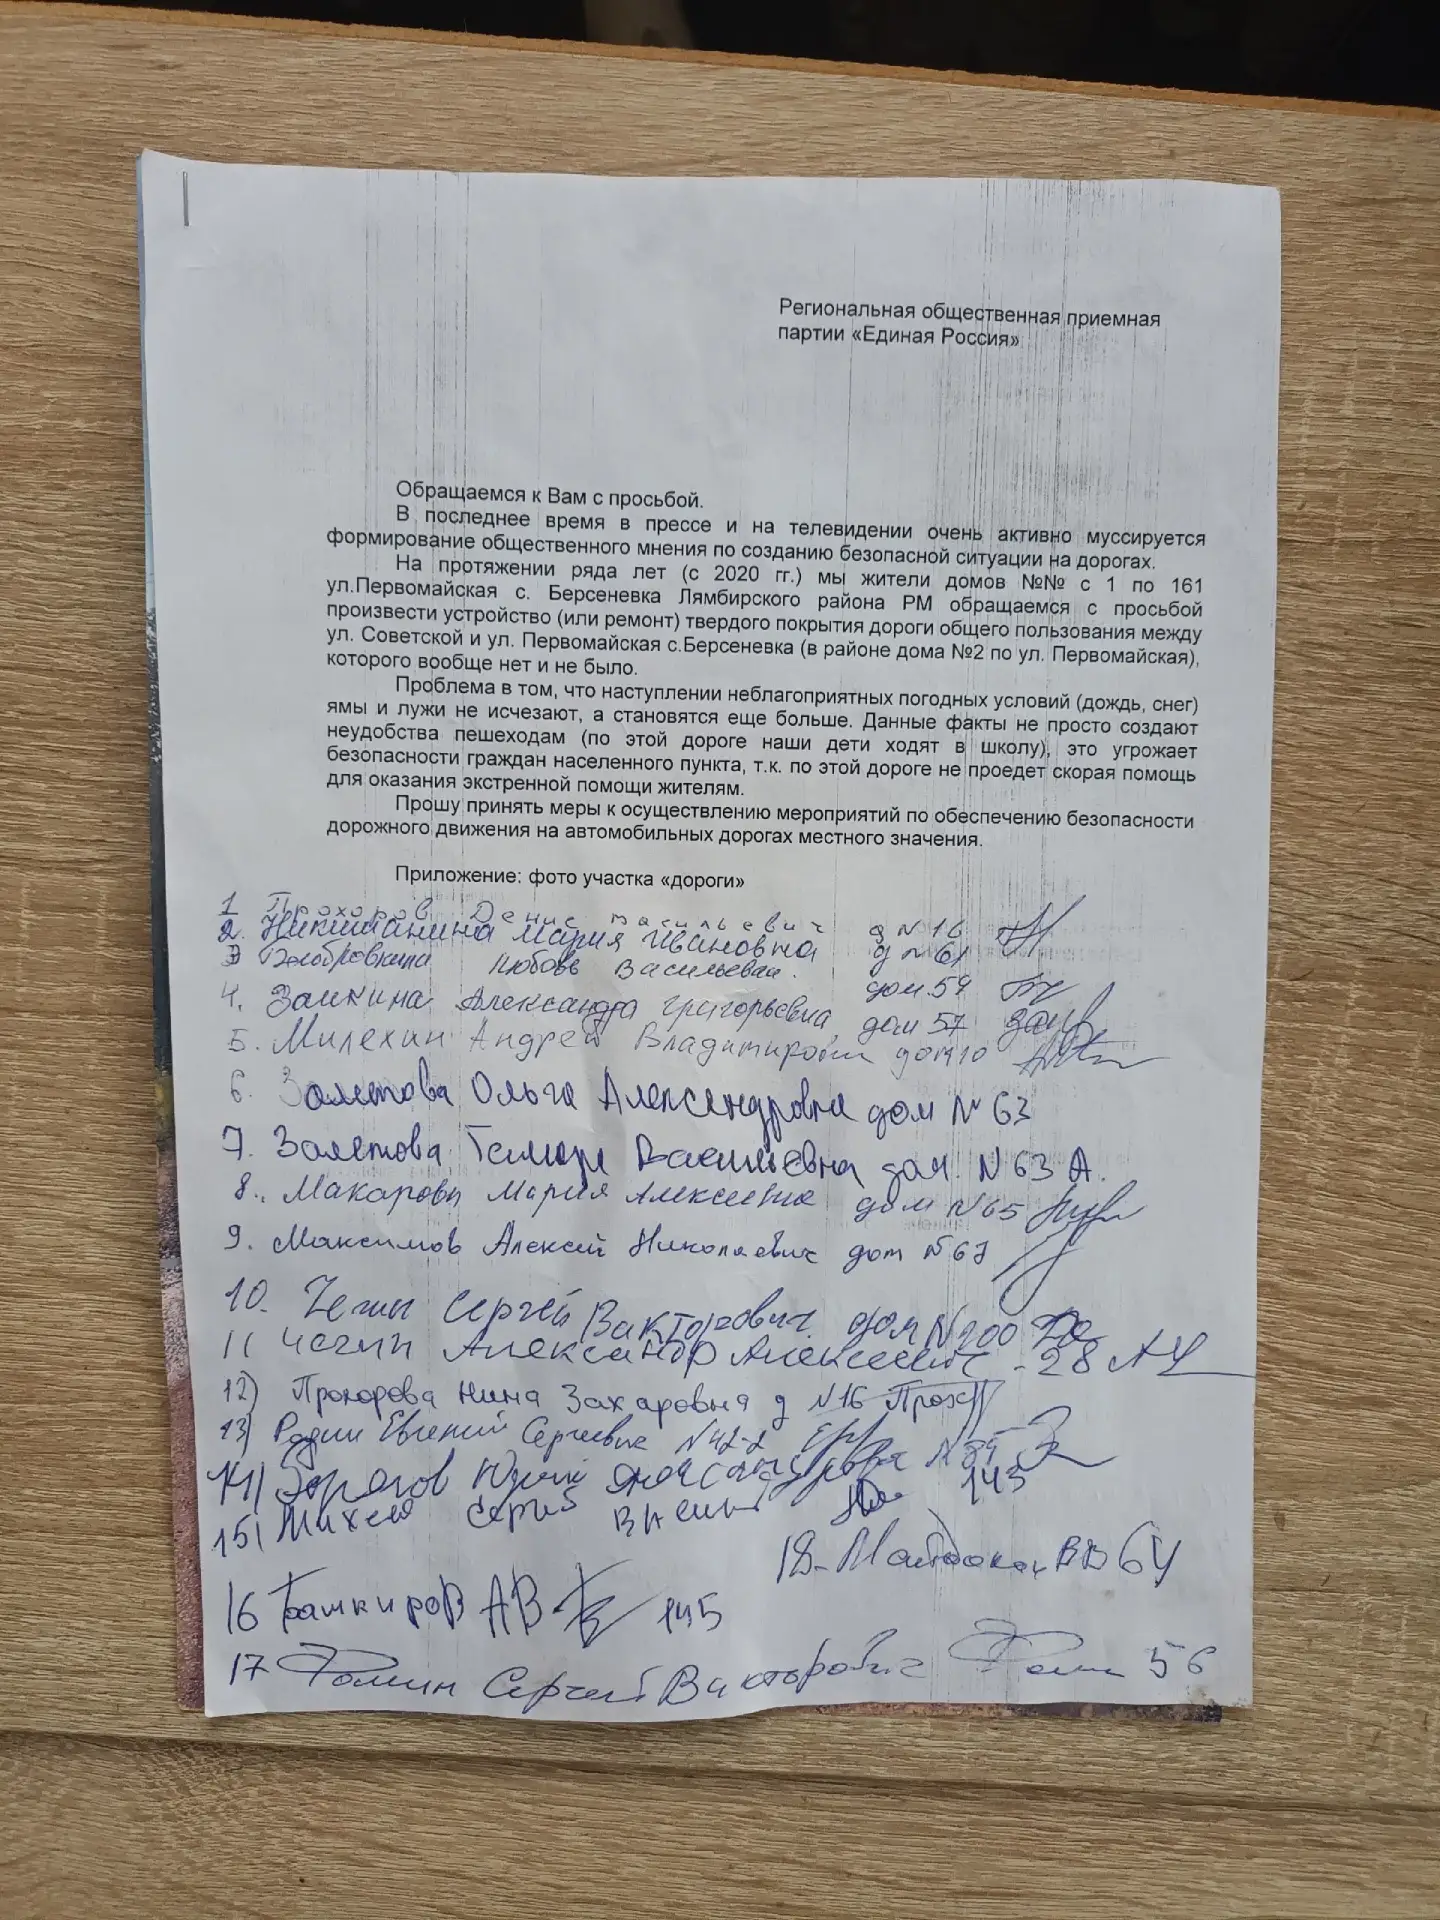 Региональная общественная приемная
партии «Единая Россия»
Обращаемся к Вам с просьбой.
В последнее время в прессе и на телевидении очень активно муссируется
формирование общественного мнения по созданию безопасной ситуации на дорогах.
На протяжении ряда лет (с 2020 гг.) мы жители домов №№ с 1 по 161
ул.Первомайская с. Берсеневка Лямбирского района РМ обращаемся с просьбой
произвести устройство (или ремонт) твердого покрытия дороги общего пользования между
ул. Советской и ул. Первомайская с.Берсеневка (в районе дома №2 по ул. Первомайская),
которого вообще нет и не было.
Проблема в том, что наступлении неблагоприятных погодных условий (дождь, снег)
ямы и лужи не исчезают, а становятся еще больше. Данные факты не просто создают
неудобства пешеходам (по этой дороге наши дети ходят в школу), это угрожает
безопасности граждан населенного пункта, т.к. по этой дороге не проедет скорая помощь
для оказания экстренной помощи жителям.
Прошу принять меры к осуществлению мероприятий по обеспечению безопасности
дорожного движения на автомобильных дорогах местного значения.
Приложение: фото участка «дороги»
1 Прохоров Денис Васильевич д N 16
2. Никишанина Мария Ивановна д N 61
3 Любовь Васильевна. дом 59
4. Заикина Александра Григорьевна дом 57
5. Милехин Андрей Владимирович дом 10
6. Залетова Ольга Александровна дом N 63
7. Залетова Тамара Васильевна дом. N 63 А.
8. Макарова Мария Алексеевна дом N 65
9. Максимов Алексей Николаевич дом N 67
10. Сергей Викторович дом N 100
11 Чегин Александр Алексеевич - 28
12) Прохорова Нина Захаровна д N 16 Прох
13) Радин Евгений Сергеевич N 42-2
14) Юрий
15) Сергей 143
18-
16 Башкиров АВ 145
17 Фомин Сергей Викторович 56